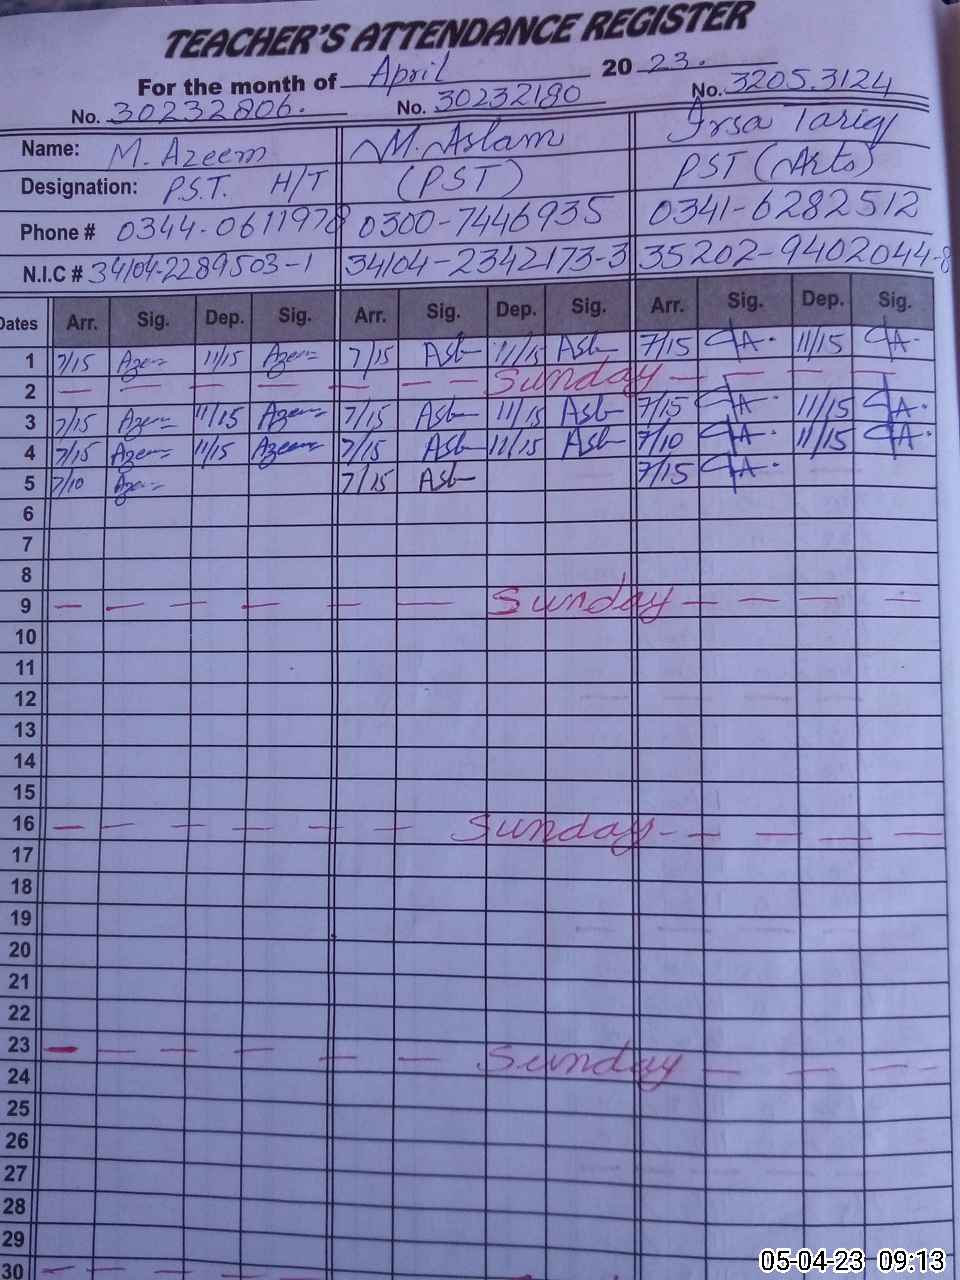 TEACHER'S ATTENDANCE REGISTER
For the month of April 20 23.
No. 30232806. No. 30232190 No. 3205.3124
Name: M. Azeem M. Aslam Irsa Tariq
Designation: P.S.T. H/T (PST) PST (Arts)
Phone # 0344-0611978 0300-7446935 0341-6282512
N.I.C # 34104-2289503-1 34104-2342173-3 35202-9402044-8
Dates Arr. Sig. Dep. Sig. Arr. Sig. Dep. Sig. Arr. Sig. Dep. Sig.
1 7/15 Azeem 11/15 Azeem 7/15 Asl 11/15 Asl 7/15 IA. 11/15 IA.
2 Sunday
3 7/15 Azeem 11/15 Azeem 7/15 Asl 11/15 Asl 7/15 IA. 11/15 IA.
4 7/15 Azeem 11/15 Azeem 7/15 Asl 11/15 Asl 7/10 IA. 11/15 IA.
5 7/10 Azeem 7/15 Asl 7/15 IA.
6
7
8
9 Sunday
10
11
12
13
14
15
16 Sunday
17
18
19
20
21
22
23 Sunday
24
25
26
27
28
29
30
05-04-23 09:13